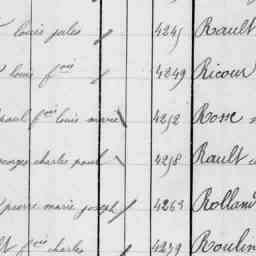 louis jules 4245 Rault
louis fois 4249 Ricour
paul fois louis marie 4252 Rosse
georges charles paul 4258 Rault
pierre marie joseph 4263 Rolland
fois charles 4259 Roulin